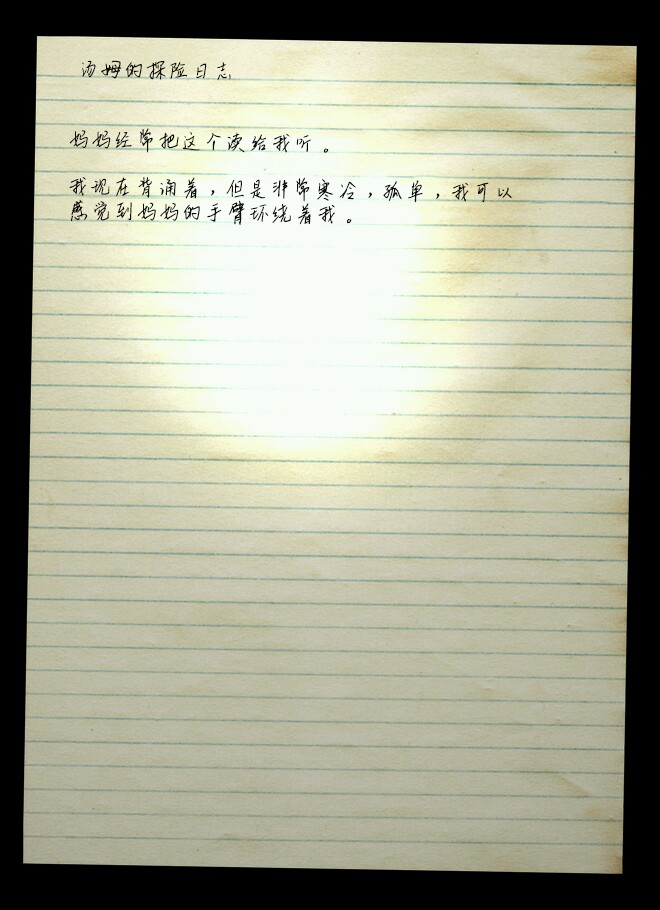 汤姆的探险日志
妈妈经常把这个读给我听。
我现在背诵着，但是非常寒冷，孤单，我可以
感觉到妈妈的手臂环绕着我。